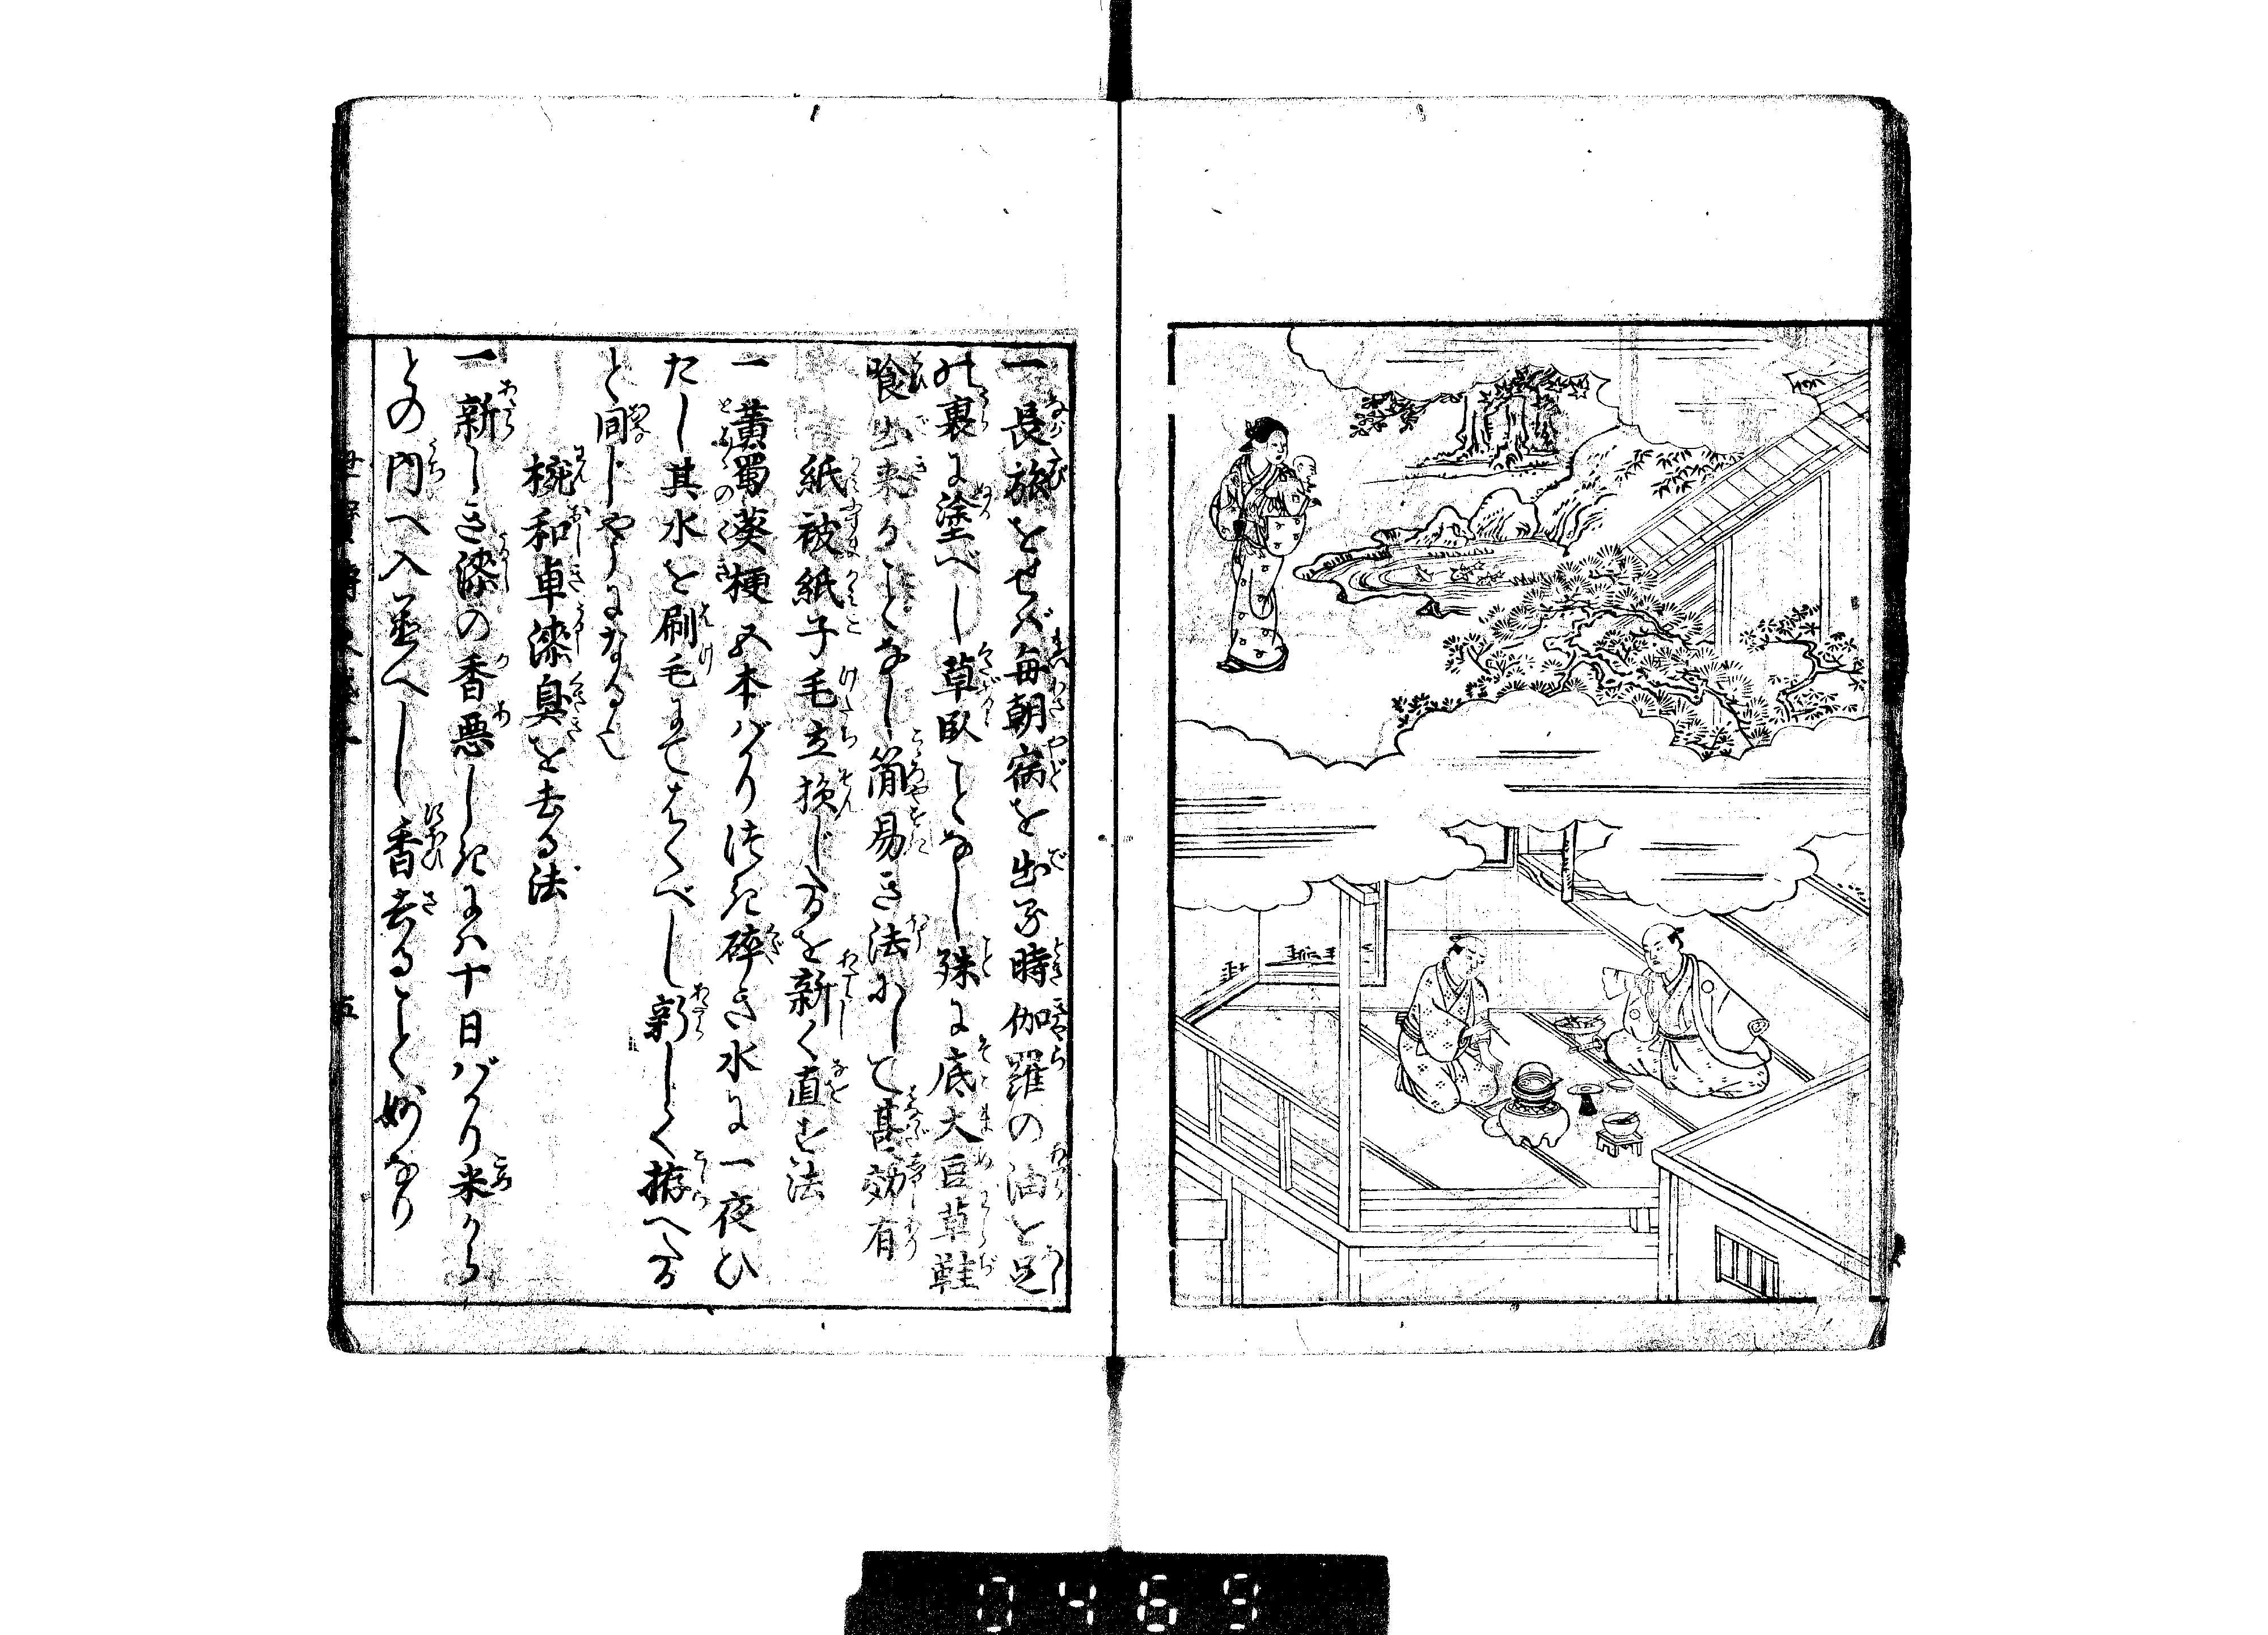 一長旅をせバ毎朝宿を出る時伽羅の油を足
の裏に塗べし草臥ことなし殊に底大豆草鞋
喰出来ることなし簡易き法にして甚効有
紙被紙子毛立損じたるを新く直す法
一黄蜀葵梗五本バかりほど砕き水に一夜ひ
たし其水を刷毛にてはくべし新しく拵へたる
と同じやうになる也
椀和卓漆臭を去る法
一新しき漆の香悪しきにハ十日バかり米から
との内へ入置べし香去ること妙なり
五
0469